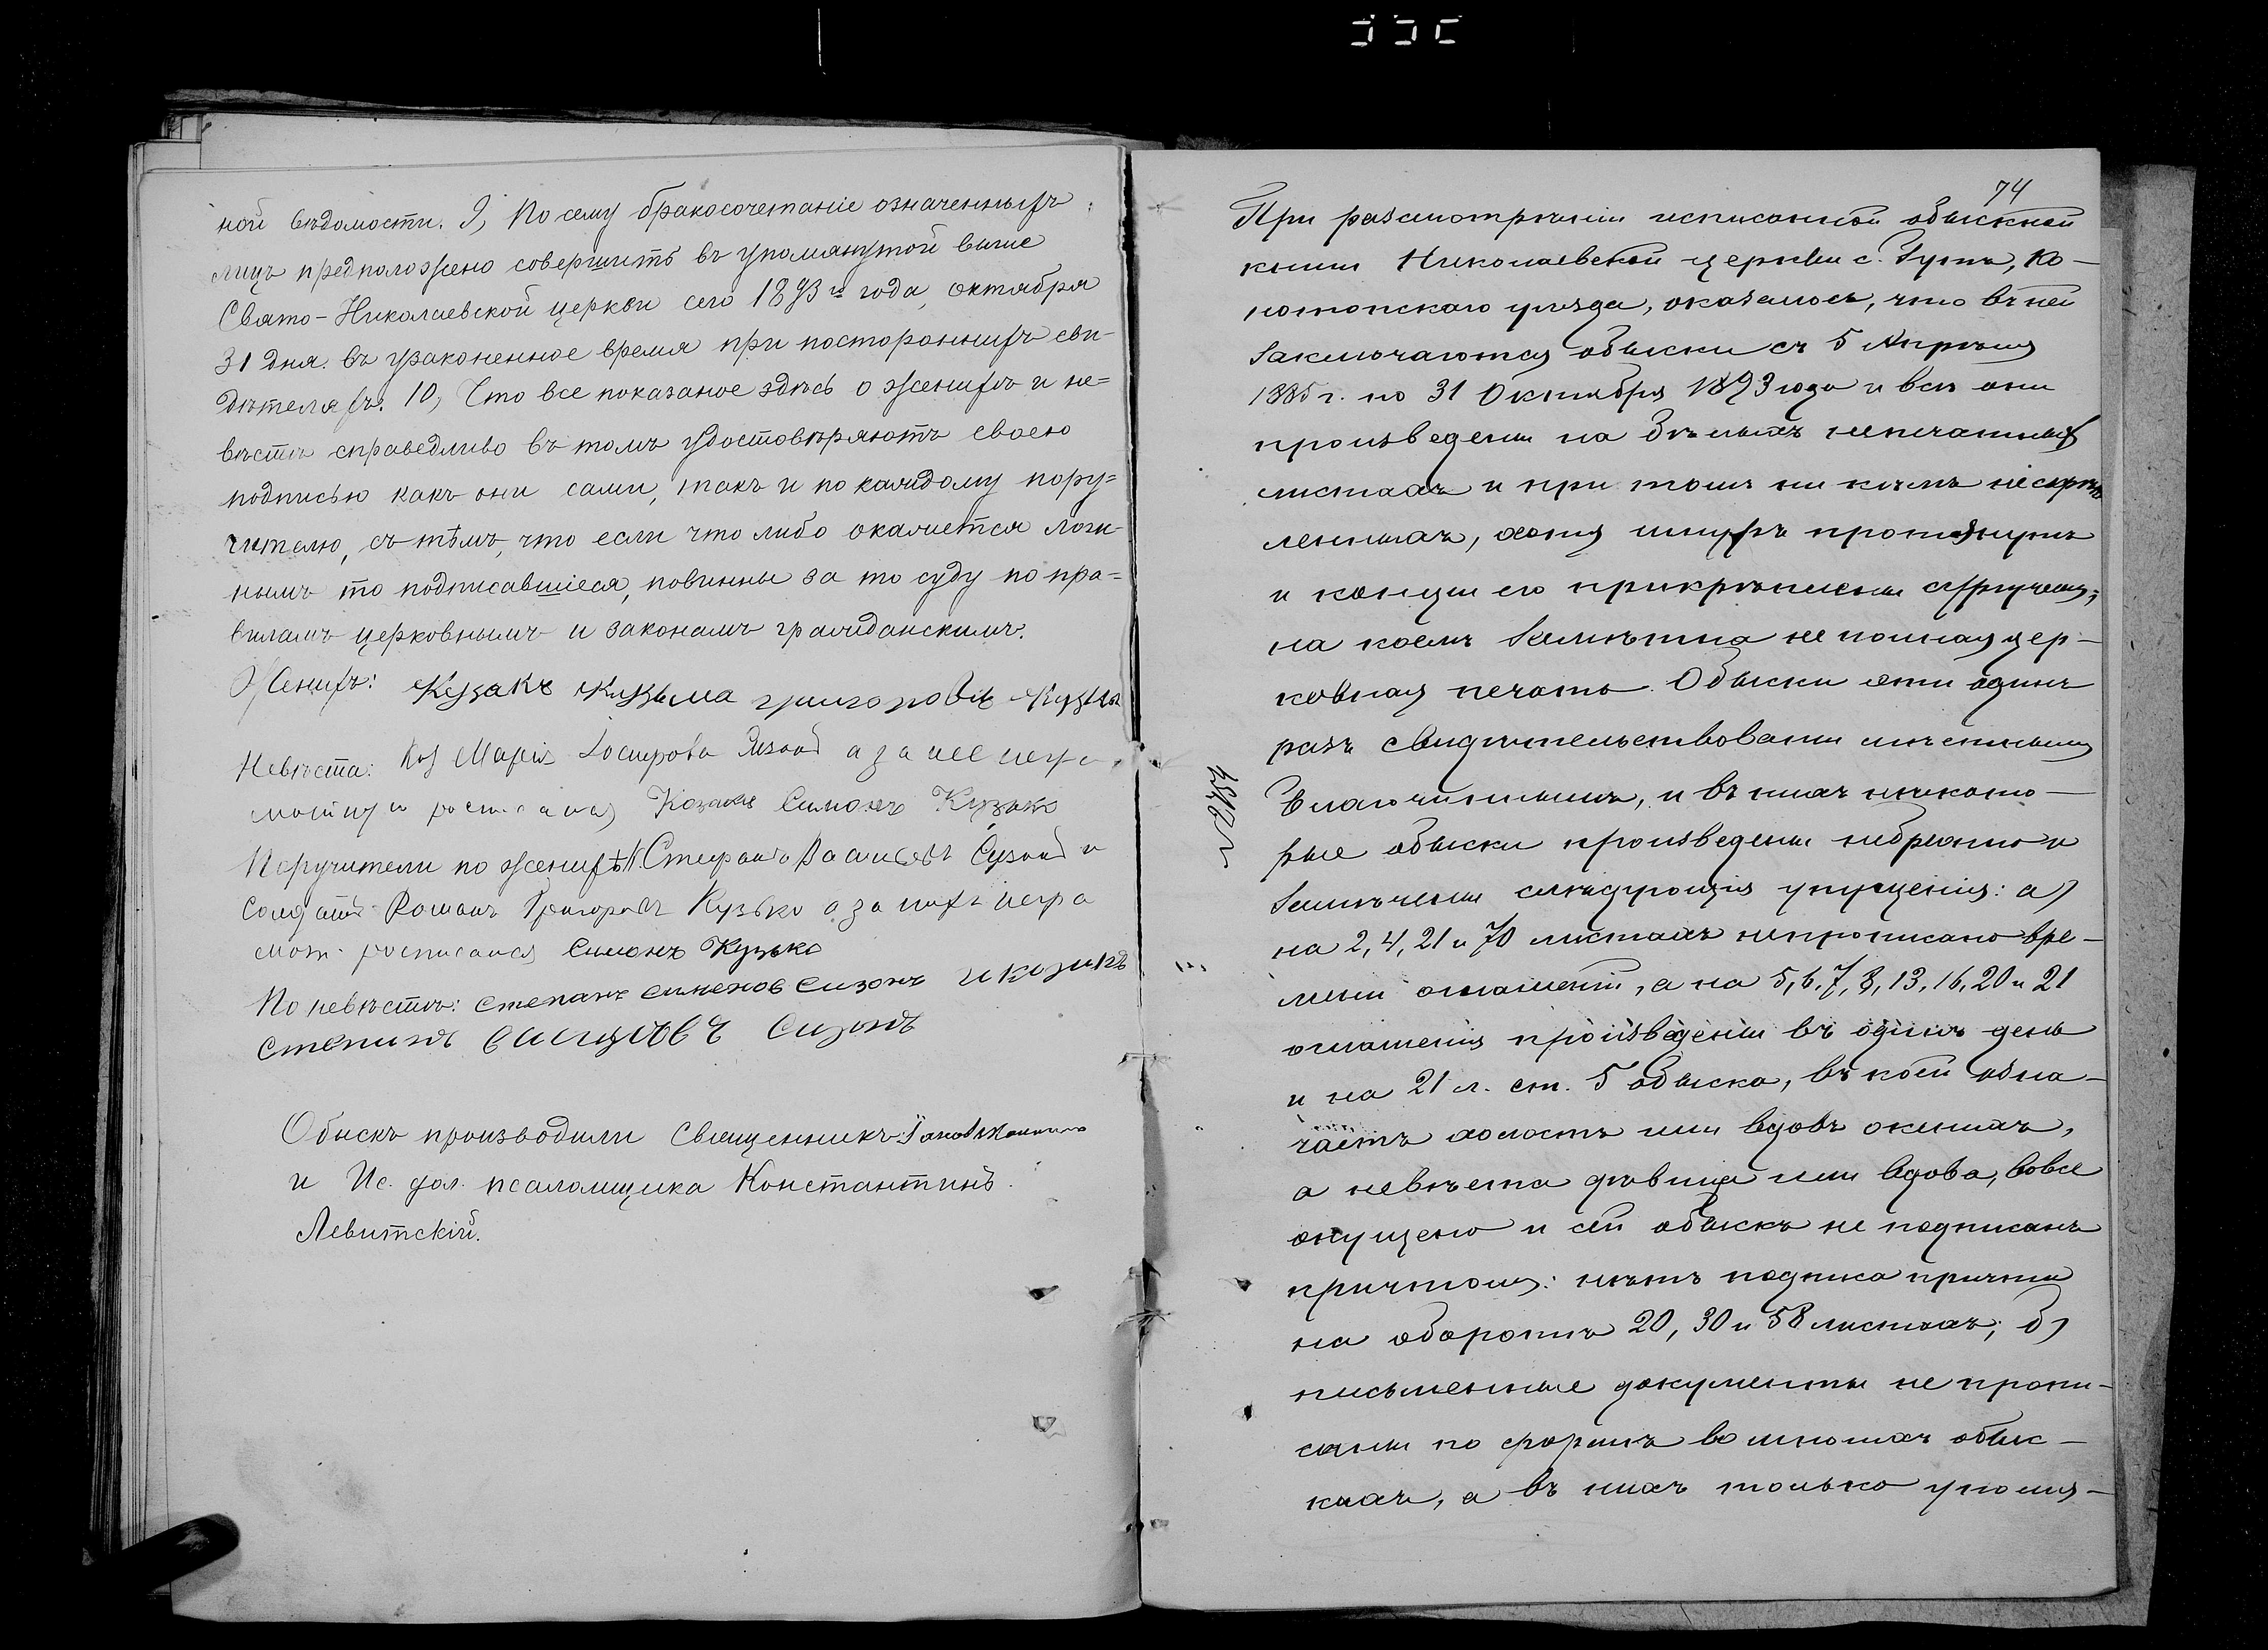 ной вѣдомости. 9, По сему бракосочетаніе означенныхъ
лицъ предположено совершить въ упомянутой выше
Свято-Николаевской церкви сего 1893 го года, октября
31 дня. въ узаконенное время при постороннихъ сви-
дѣтеляхъ. 10, Что все показаное здѣсь о женихѣ и не=
вѣстѣ справедливо въ томъ удостовѣряютъ своею
подписью какъ они сами, такъ и по каждому пору=
чителю, съ тѣмъ, что если что либо окажется лож-
нымъ то подписавшіеся, повинны за то суду по пра=
виламъ церковнымъ и законамъ гражданскимъ.
Женихъ: Козакъ Кузьма григоровъ
Невѣста: Коз Марія Іосифова а за нее негра
мотную росписался Козакъ Симонъ Кузько
Поручители по женихѣ: К. Стефанъ и
Солдатъ Романъ Григоровъ Кузько а за нихъ негра
мот. росписался Симонъ Кузько
По невѣстѣ: Степанъ Сизонъ и козакъ
Степанъ Сизонъ
Обыскъ производили Священникъ
и Ис. дол. псаломщика Константинъ
Левитскій.
74
При разсмотрѣніи исписанной обыскной
книги Николаевской церкви с. Гутъ, Ко-
нотопскаго уѣзда, оказалось, что въ ней
заключаются обыски съ 5 Апрѣля
1885 г. по 31 Октября 1893 года и всѣ они
произведены на бѣлыхъ непечатныхъ
листахъ и при томъ ни кѣмъ нескрѣп
ленныхъ, хотя шнуръ протянутъ
и концы его прикрѣплены сургучемъ,
на коемъ замѣтна не полная цер-
ковная печать. Обыски эти одинъ
разъ свидѣтельствованы мѣстнымъ
Благочиннымъ, и въ нихъ нѣкото-
рые обыски произведены небрежно и
замѣчены слѣдующія упущенія: а)
на 2, 4, 21 и 70 листахъ непрописано вре-
мени оглашеній, а на 5, 6, 7, 8, 13, 16, 20 и 21
оглашенія произведены въ одинъ день
и на 21 л. ст. 5 обыска, въ коей обна-
чаетъ холостъ или вдовъ женихъ,
а невѣста дѣвица или вдова, вовсе
опущено и сей обыскъ не подписанъ
причтомъ: нѣтъ подписа причта
на оборотѣ 20, 30 и 58 листахъ; б)
письменные документы не пропи-
саны по формѣ во многихъ обыс-
кахъ, а въ нихъ только упомя-